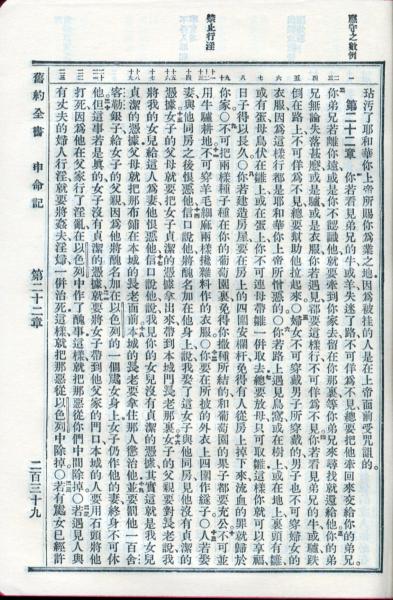 應守之數例
禁止行淫
玷汚了耶和華你上帝所賜你爲業之地、因爲被挂的人是在上帝面前受咒詛的。
第二十二章 你若看見弟兄的牛或羊失迷了路、不可佯爲不見、總要把他牽回來交給你的弟兄。
你弟兄若離你遠、或是你不認識他、就要牽到你家去、留在你那裏、等你弟兄來尋找就還給他。你的弟
兄無論失落甚麽、或是驢、或是衣服、你若遇見、都要這樣行、不可佯爲不見。你若看見弟兄的牛或驢跌
倒在路上、不可佯爲不見、總要幫助他拉起來。○婦女不可穿戴男子所穿戴的、男子也不可穿婦女的
衣服、因爲這樣行都是耶和華你上帝所憎惡的。○你若路上遇見鳥窩、或在樹上、或在地上、裏頭有雛、
或有蛋、母鳥伏在雛上、或在蛋上、你不可連母帶雛一併取去。總要放母、只可取雛、這樣你就可以享福、
日子得以長久。○你若建造房屋、要在房上的四圍安欄杆、免得有人從房上掉下來、流血的罪就歸於
你家。○不可把兩樣種子種在你的葡萄園裏、免得你撒種所結的、和葡萄園的果子、都要充公。不可並
用牛驢耕地。不可穿羊毛細麻兩樣攙雜料作的衣服。○你要在所披的外衣上四圍作繸子。○人若娶
妻、與他同房之後恨惡他、信口說他、將醜名加在他身上、說、我娶了這女子、與他同房、見他沒有貞潔的
憑據。女子的父母就要把女子貞潔的憑據拿出來、帶到本城門長老那裏。女子的父親要對長老說、我
將我的女兒給這人爲妻、他恨惡他、信口說他、說、我見你的女兒沒有貞潔的憑據、其實這就是我女兒
貞潔的憑據、父母就把那布鋪在本城的長老面前。本城的長老要拿住那人、懲治他、並要罰他一百舍
客勒銀子、給女子的父親、因爲他將醜名加在以色列的一個處女身上、女子仍作他的妻、終身不可休
他。但這事若是真的、女子沒有貞潔的憑據、就要將女子帶到他父家的門口、本城的人要用石頭將他
打死、因爲他在父家行了淫亂、在以色列中作了醜事、這樣就把那惡從你們中間除掉。○若遇見人與
有丈夫的婦人行淫、就要將姦夫淫婦一併治死、這樣就把那惡從以色列中除掉。○若有處女已經許
舊約全書 申命記 第二十二章 二百三十九